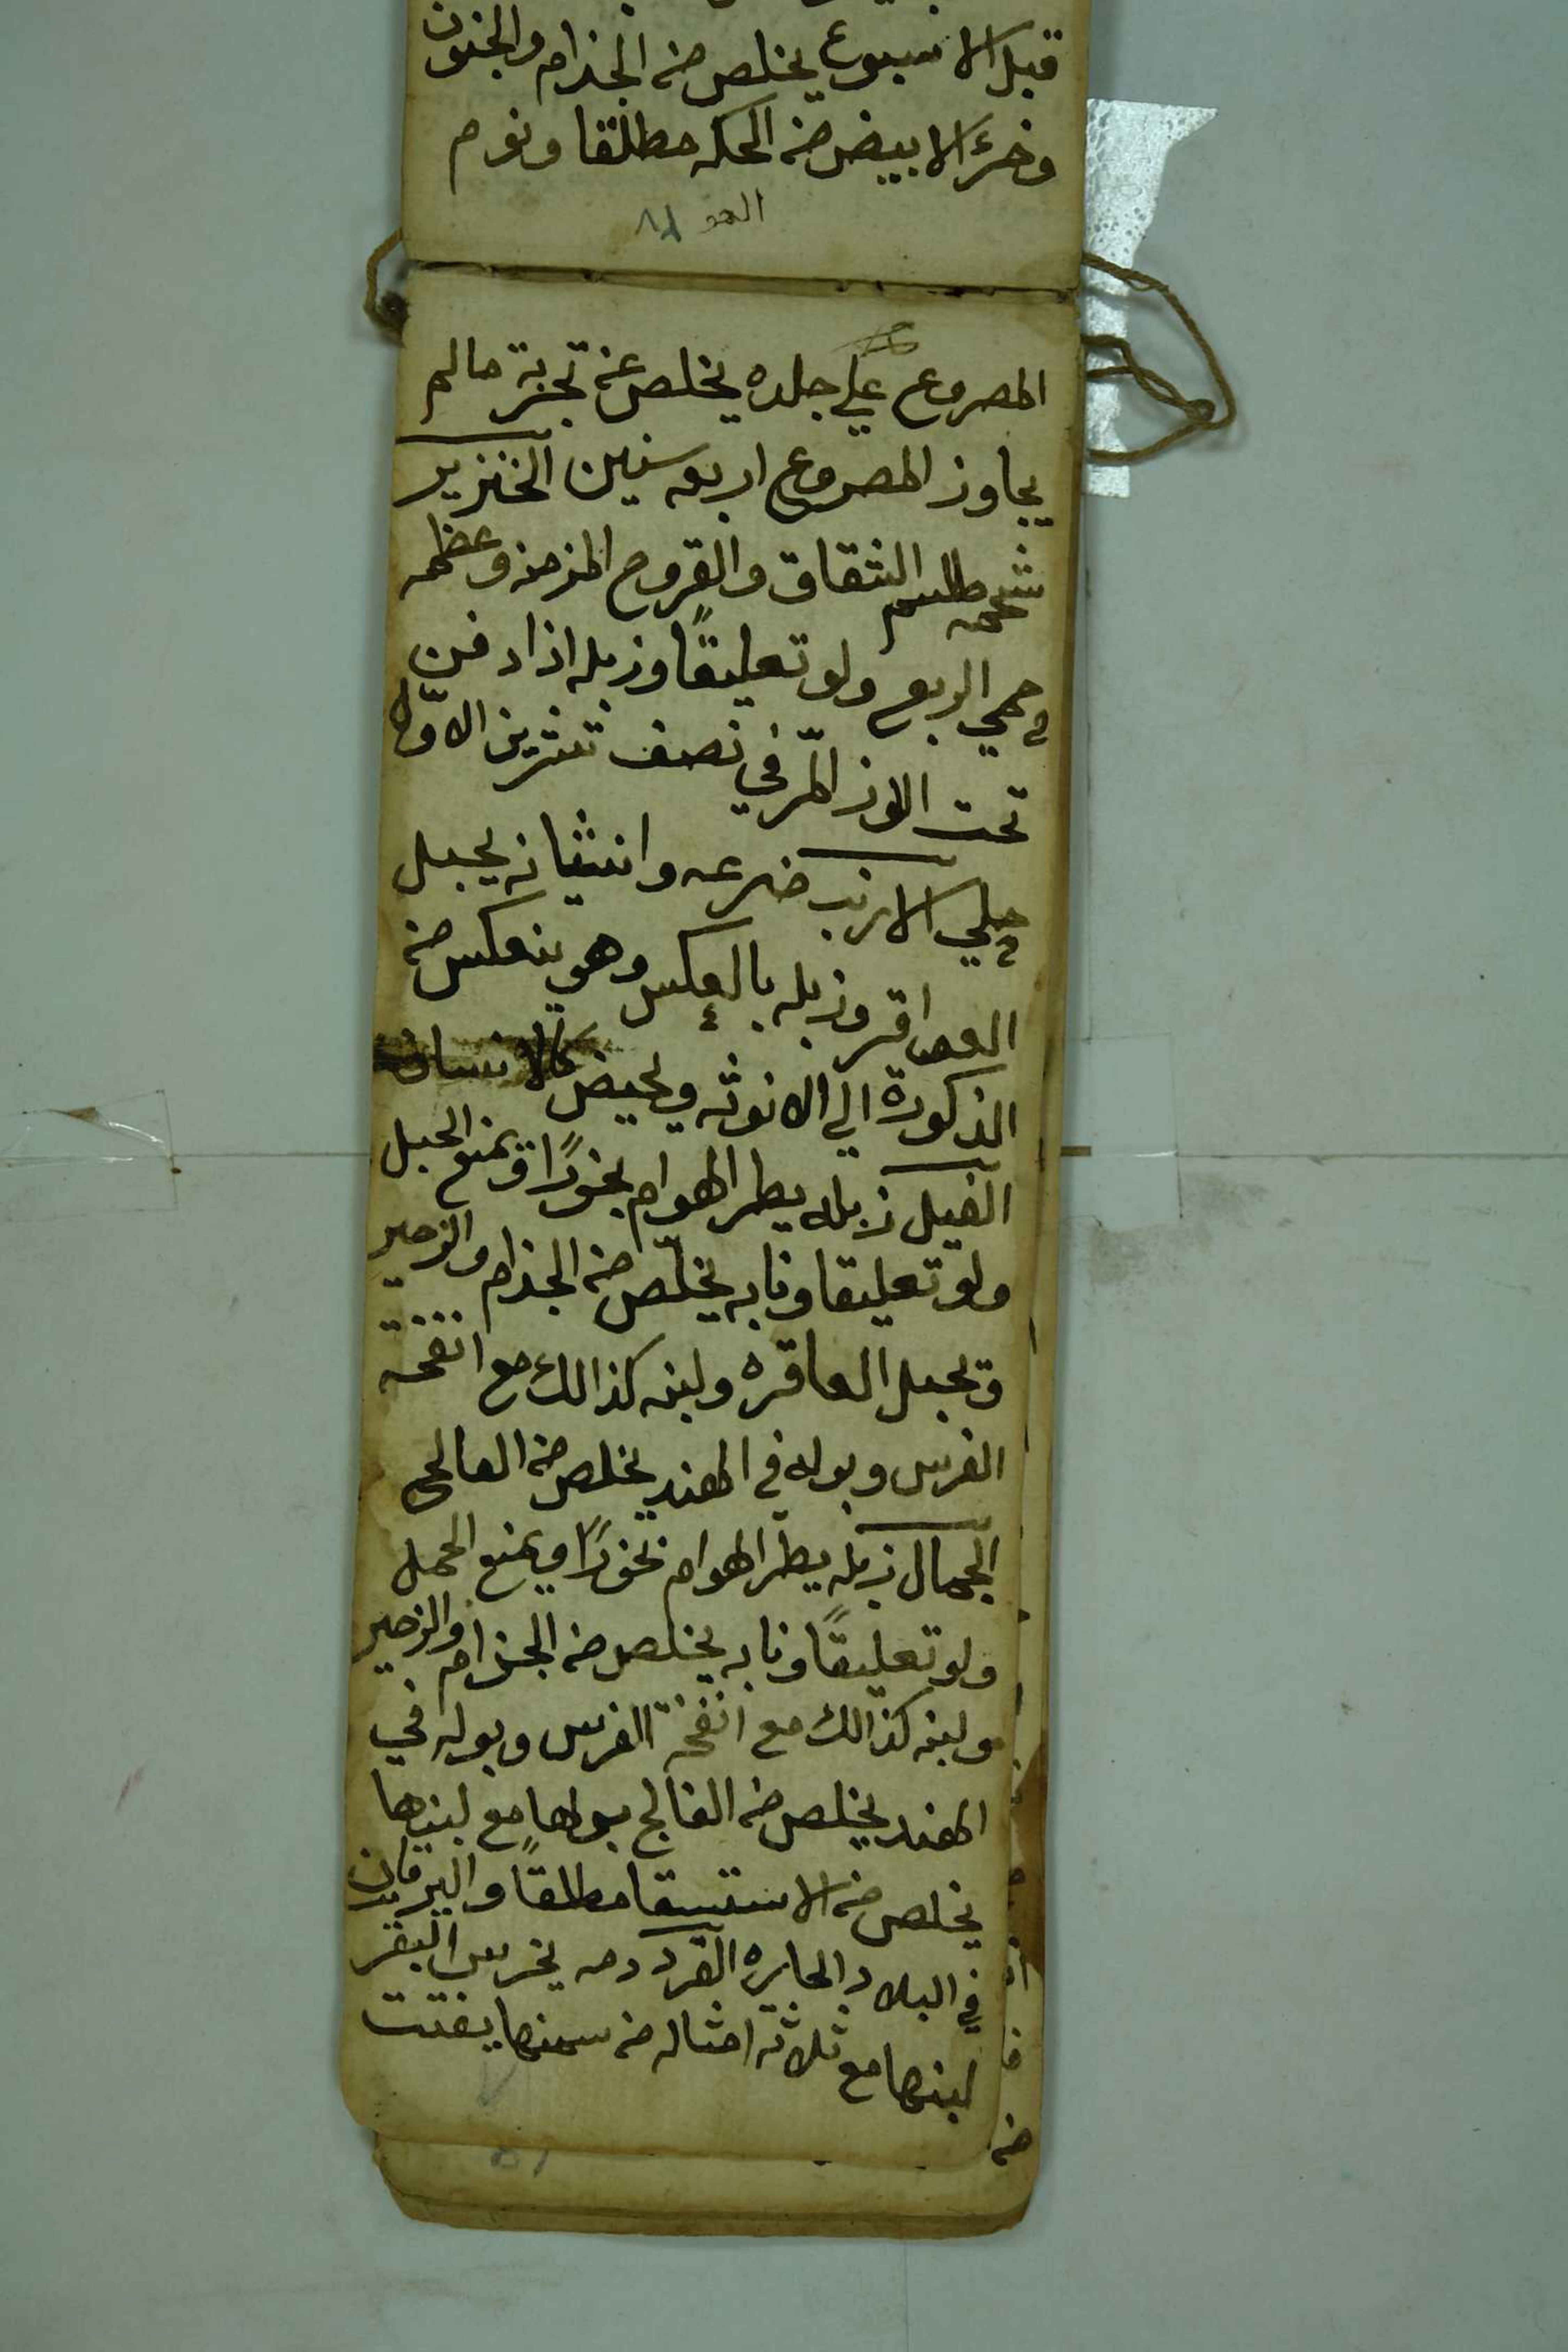 قبل الاسبوع يخلص من الجذام والجنون
وخرء الابيض من الحكه مطلقا ونوم
المصروع علي جلده يخلص عنه تجربة مالم
يجاوز المصروع اربعه سنين الخنزير
شحمه طلسم الشقاق والقروح المزمنه وعظمه
حمي الربع ولو تعليقًا وزبله اذا دفن
تحت اللوز المّر في نصف تشرين الاوّل
حلي الارنب ضرعه وانثيانه يحبل
العواقر وزبله بالعكس وهو ينعكس من
الذكورة الي الانوثه ويحيض كالانسان
الفيل زبله يطر الهوام بخورًا ويمنع الحبل
ولو تعليقا ونابه يخلّص من الجذام والزحير
وتحبل العاقره ولبنه كذالك مع انفحة
الفرس وبوله في الهند يخلص من الفالج
الجمال زبله يطر الهوام بخورًا ويمنع الحمل
ولو تعليقًا ونابه يخلص من الجذام والزحير
ولبنه كذالك مع انفحة الفرس وبوله في
الهند يخلص من الفالج بولها مع لبنها
يخلص من الاستسقا مطلقًا واليرقان
في البلاد الحاره القرد دمه يخرس البقر
لبنها مع ثلاثة امثاله من سمنها يفتت